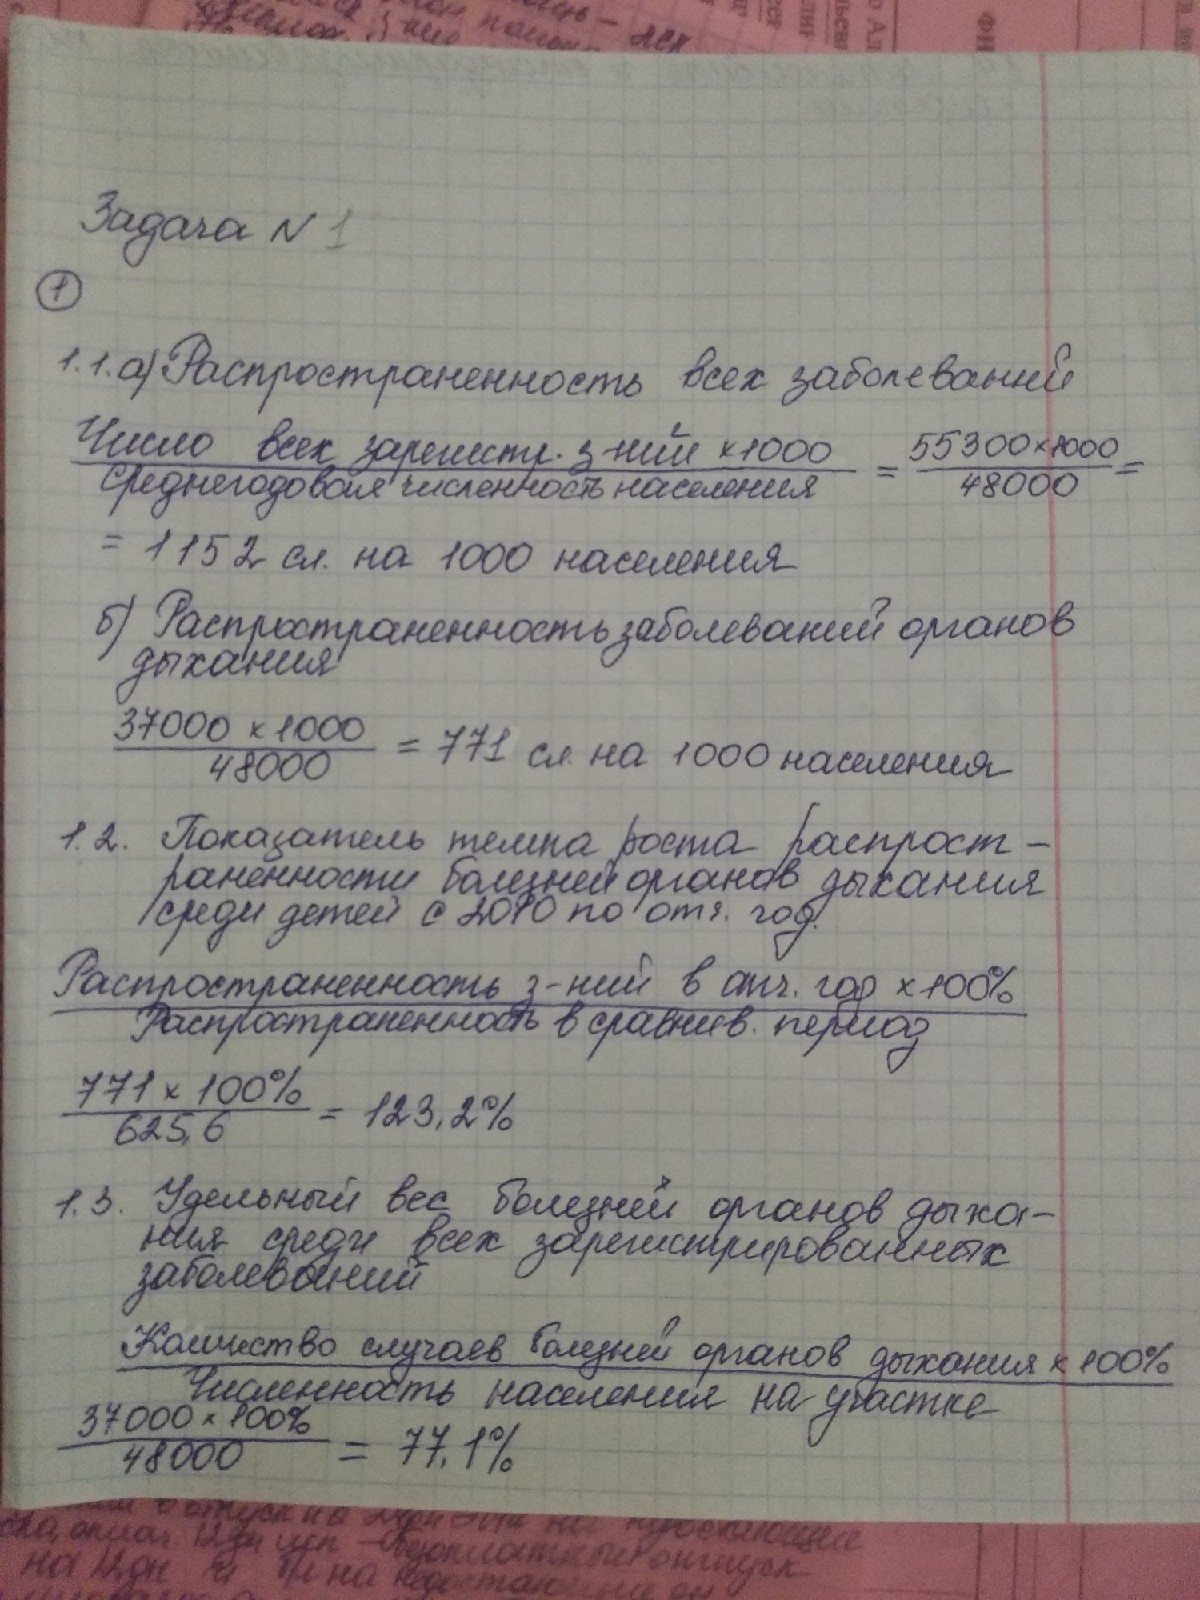 Задача N 1
1
1.1. а) Распространенность всех заболеваний
Число всех зарегистр. з-ний ×1000 = 55300×1000 =
среднегодовая численность населения 48000
= 1152 сл. на 1000 населения
б) Распространенность заболеваний органов
дыхания
37000 × 1000 = 771 сл. на 1000 населения
48000
1.2. Показатель темпа роста распрост-
раненности болезней органов дыхания
среди детей с 2010 по отч. год.
Распространенность з-ний в отч. год ×100%
Распространенность в сравнив. период
771 × 100% = 123,2%
625,6
1.3. Удельный вес болезней органов дыха-
ния среди всех зарегистрированных
заболеваний
Количество случаев болезней органов дыхания × 100%
Численность населения на участке
37000 × 100% = 77,1%
48000
на 12дн